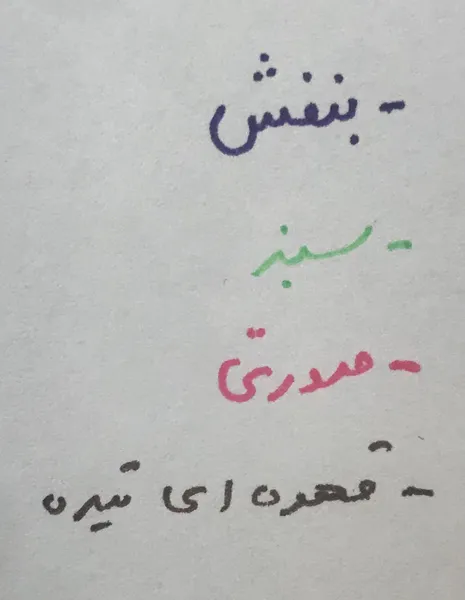 - بنفش
- سبز
- صورتی
- قهوه ای تیره